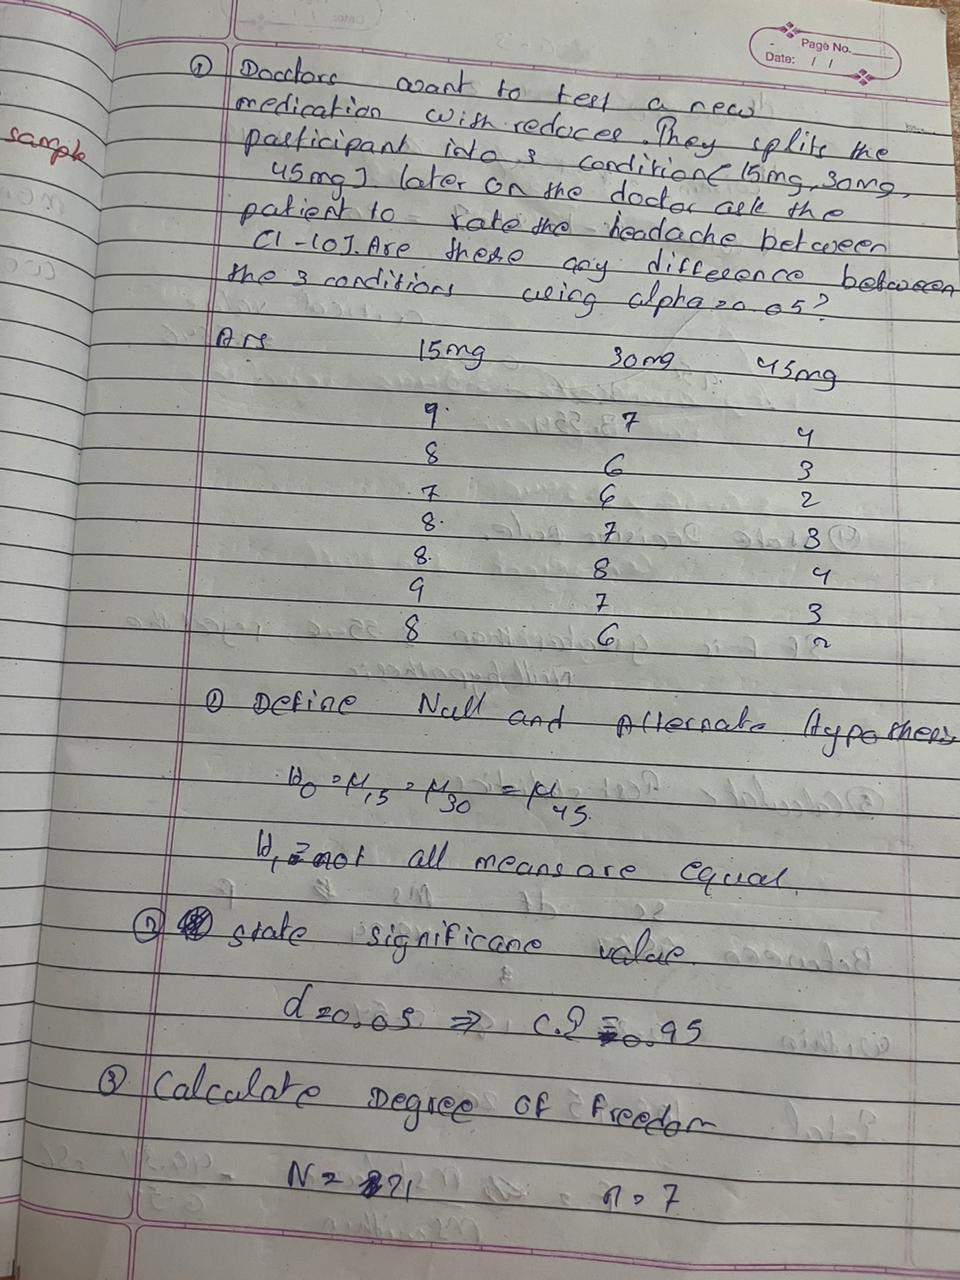 Page No.
Date: / /
sample
① Docctors want to test a new
medication with reduces. They splits the
participant into 3 condition[15mg, 30mg,
45mg]. later on the doctor ask the
patient to rate the headache between
[1-10]. Are these any difference between
the 3 conditions using alpha=0.05?
Ans 15mg 30mg 45mg
9 7 4
8 6 3
7 6 2
8 7 3
8 8 4
9 7 3
8 6 2
① Define Null and Alternate Hypothesis
H0 = μ15 = μ30 = μ45.
H1 = not all means are equal.
② state significane value
α=0.05 ⇒ C.I = 0.95
③ Calculate Degree of freedom
N = 21 n = 7